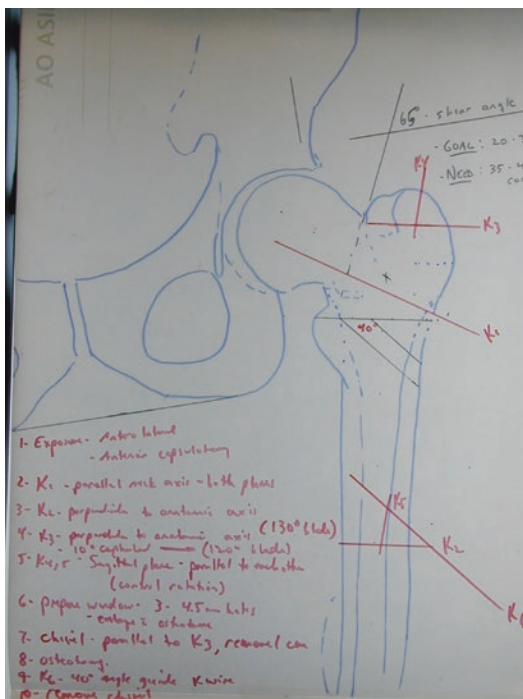 AO ASI
65° - shear angle
- GOAL: 20 -
- NEED: 35 - 4
K4
K3
K1
40°
K5
K2
K6
1- Exposure - Antero lateral
- Anterior capsulotomy
2- K1 - parallel neck axis - both planes
3- K2 - perpendicular to anatomic axis
4- K3 - perpendicular to anatomic axis (130° blade)
- 10° cephalad (120° blade)
5- K4,5 - Sagittal plane - parallel to each other
(control rotation)
6- prepare window - 3 - 4.5mm holes
osteotome
7- chisel - parallel to K3, remove
8- osteotomy.
9- K6 - 40° angle guide K wire
10- remove chisel